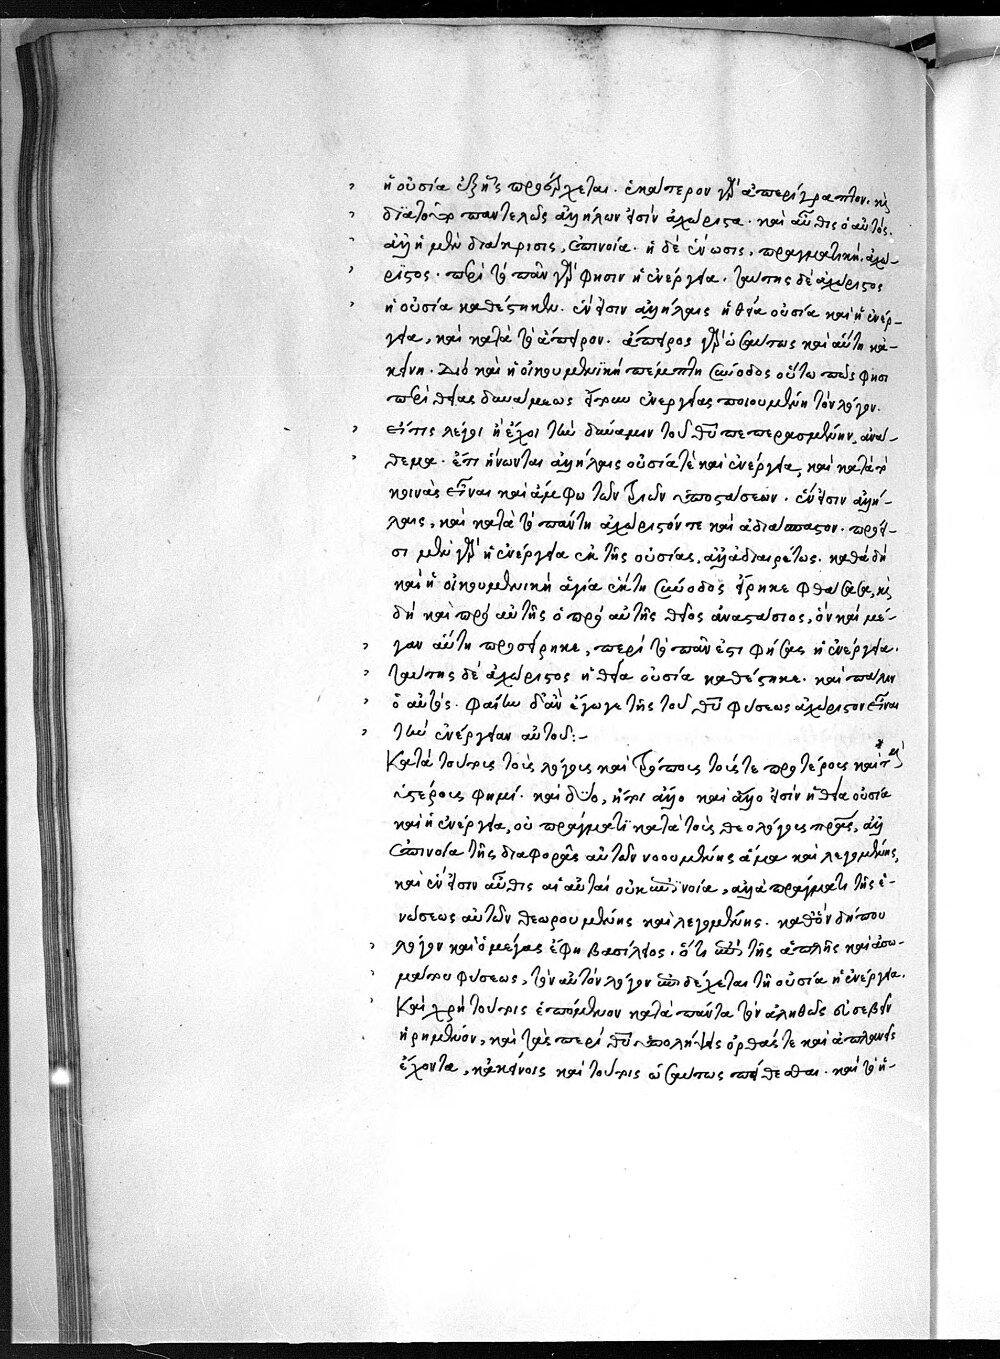 ἡ οὐσία ἐξ ἧς προέρχεται. ἑκάτερον γὰρ ἀπερίγραπτον. καὶ
διατοῦτο παντελῶς ἀλλήλων εἰσὶν ἀχώριστα. καὶ αὖθις ὁ αὐτός.
ἀλλ' ἡ μὲν διάκρισις, ἐπινοία. ἡ δὲ ἕνωσις, πραγματικὴ. ἀχώ-
ριστος. περὶ τὸ πᾶν γὰρ φησιν ἡ ἐνέργεια. ταύτης δὲ ἀχώριστος
ἡ οὐσία καθέστηκεν. ἕν εἰσιν ἀλλήλαις ἡ θεία οὐσία καὶ ἡ ἐνέρ-
γεια, καὶ κατὰ τὸ ἄπειρον. ἄπειρος γὰρ ὡσαύτως καὶ αὕτη κἀ-
κείνη. Διὸ καὶ ἡ οἰκουμενικὴ πέμπτη σύνοδος οὕτω πώς φησι
περὶ θείας δυνάμεως εἴτουν ἐνεργείας ποιουμένη τὸν λόγον.
εἴ τις λέγει ἢ ἔχει τὴν δύναμιν τοῦ θυ πεπερασμένην, ἀνά-
θεμα. ἔτι ἥνωνται ἀλλήλαις οὐσία τὲ καὶ ἐνέργεια, καὶ κατὰ τὸ
κοινὰς εἶναι καὶ ἄμφω τῶν τριῶν ὑποστάσεων. ἕν εἰσιν ἀλλή-
λαις, καὶ κατὰ τὸ πάντη ἀχώριστόν τε καὶ ἀδιάσπαστον. πρόει-
σι μὲν γὰρ ἡ ἐνέργεια ἐκ τῆς οὐσίας, ἀλλ' ἀδιαιρέτως. καθὰ δὴ
καὶ ἡ οἰκουμενικὴ ἁγία ἕκτη σύνοδος εἴρηκε φθάσασα, καὶ
δὴ καὶ πρὸ αὐτῆς ὁ πρὸ αὐτῆς θεῖος ἀναστάσιος, ὃν καὶ μέ-
γαν αὕτη προσείρηκε, περὶ τὸ πᾶν ἐστι φήσας ἡ ἐνέργεια.
ταύτης δὲ ἀχώριστος ἡ θεία οὐσία καθέστηκε. καὶ πάλιν
ὁ αὐτός. φαίην δ' ἂν ἔγωγε τῆς τοῦ θυ φύσεως ἀχώριστον εἶναι
τὴν ἐνέργειαν αὐτοῦ:-
Κατὰ τούτους τοὺς λόγους καὶ τρόπους τούς τε προτέροις καὶ τοὺς
ὑστέροις φημί. καὶ δύο, ἤτοι ἄλλο καὶ ἄλλο εἰσὶν ἡ θεία οὐσία
καὶ ἡ ἐνέργεια, οὐ πράγματι κατὰ τοὺς θεολόγους πρας, ἀλλ'
ἐπινοία τῆς διαφορᾶς αὐτῶν νοουμένης ἅμα καὶ λεγομένης,
καὶ ἕν εἰσιν αὖθις αἱ αὐταὶ οὐκ ἐπινοία, ἀλλὰ πράγματι τῆς ἑ-
νώσεως αὐτῶν θεωρουμένης καὶ λεγομένης. καθ' ὃν δήπου
λόγον καὶ ὁ μέγας ἔφη βασίλειος. ὅτι ἐπὶ τῆς ἁπλῆς καὶ ἀσω-
μάτου φύσεως, τὸν αὐτὸν λόγον ἐπιδέχεται τῆ οὐσία ἡ ἐνέργεια.
Καὶ χρὴ τούτοις ἑπόμενον κατὰ πάντα τὸν ἀληθῶς εὐσεβεῖν
ἡρημένον, καὶ τὰς περὶ θυ ὑπολήψεις ὀρθάς τε καὶ ἀπλανεῖς
ἔχοντα, κἀκείνοις καὶ τούτοις ὡσαύτως πείθεσθαι. καὶ τὸ ἡ-